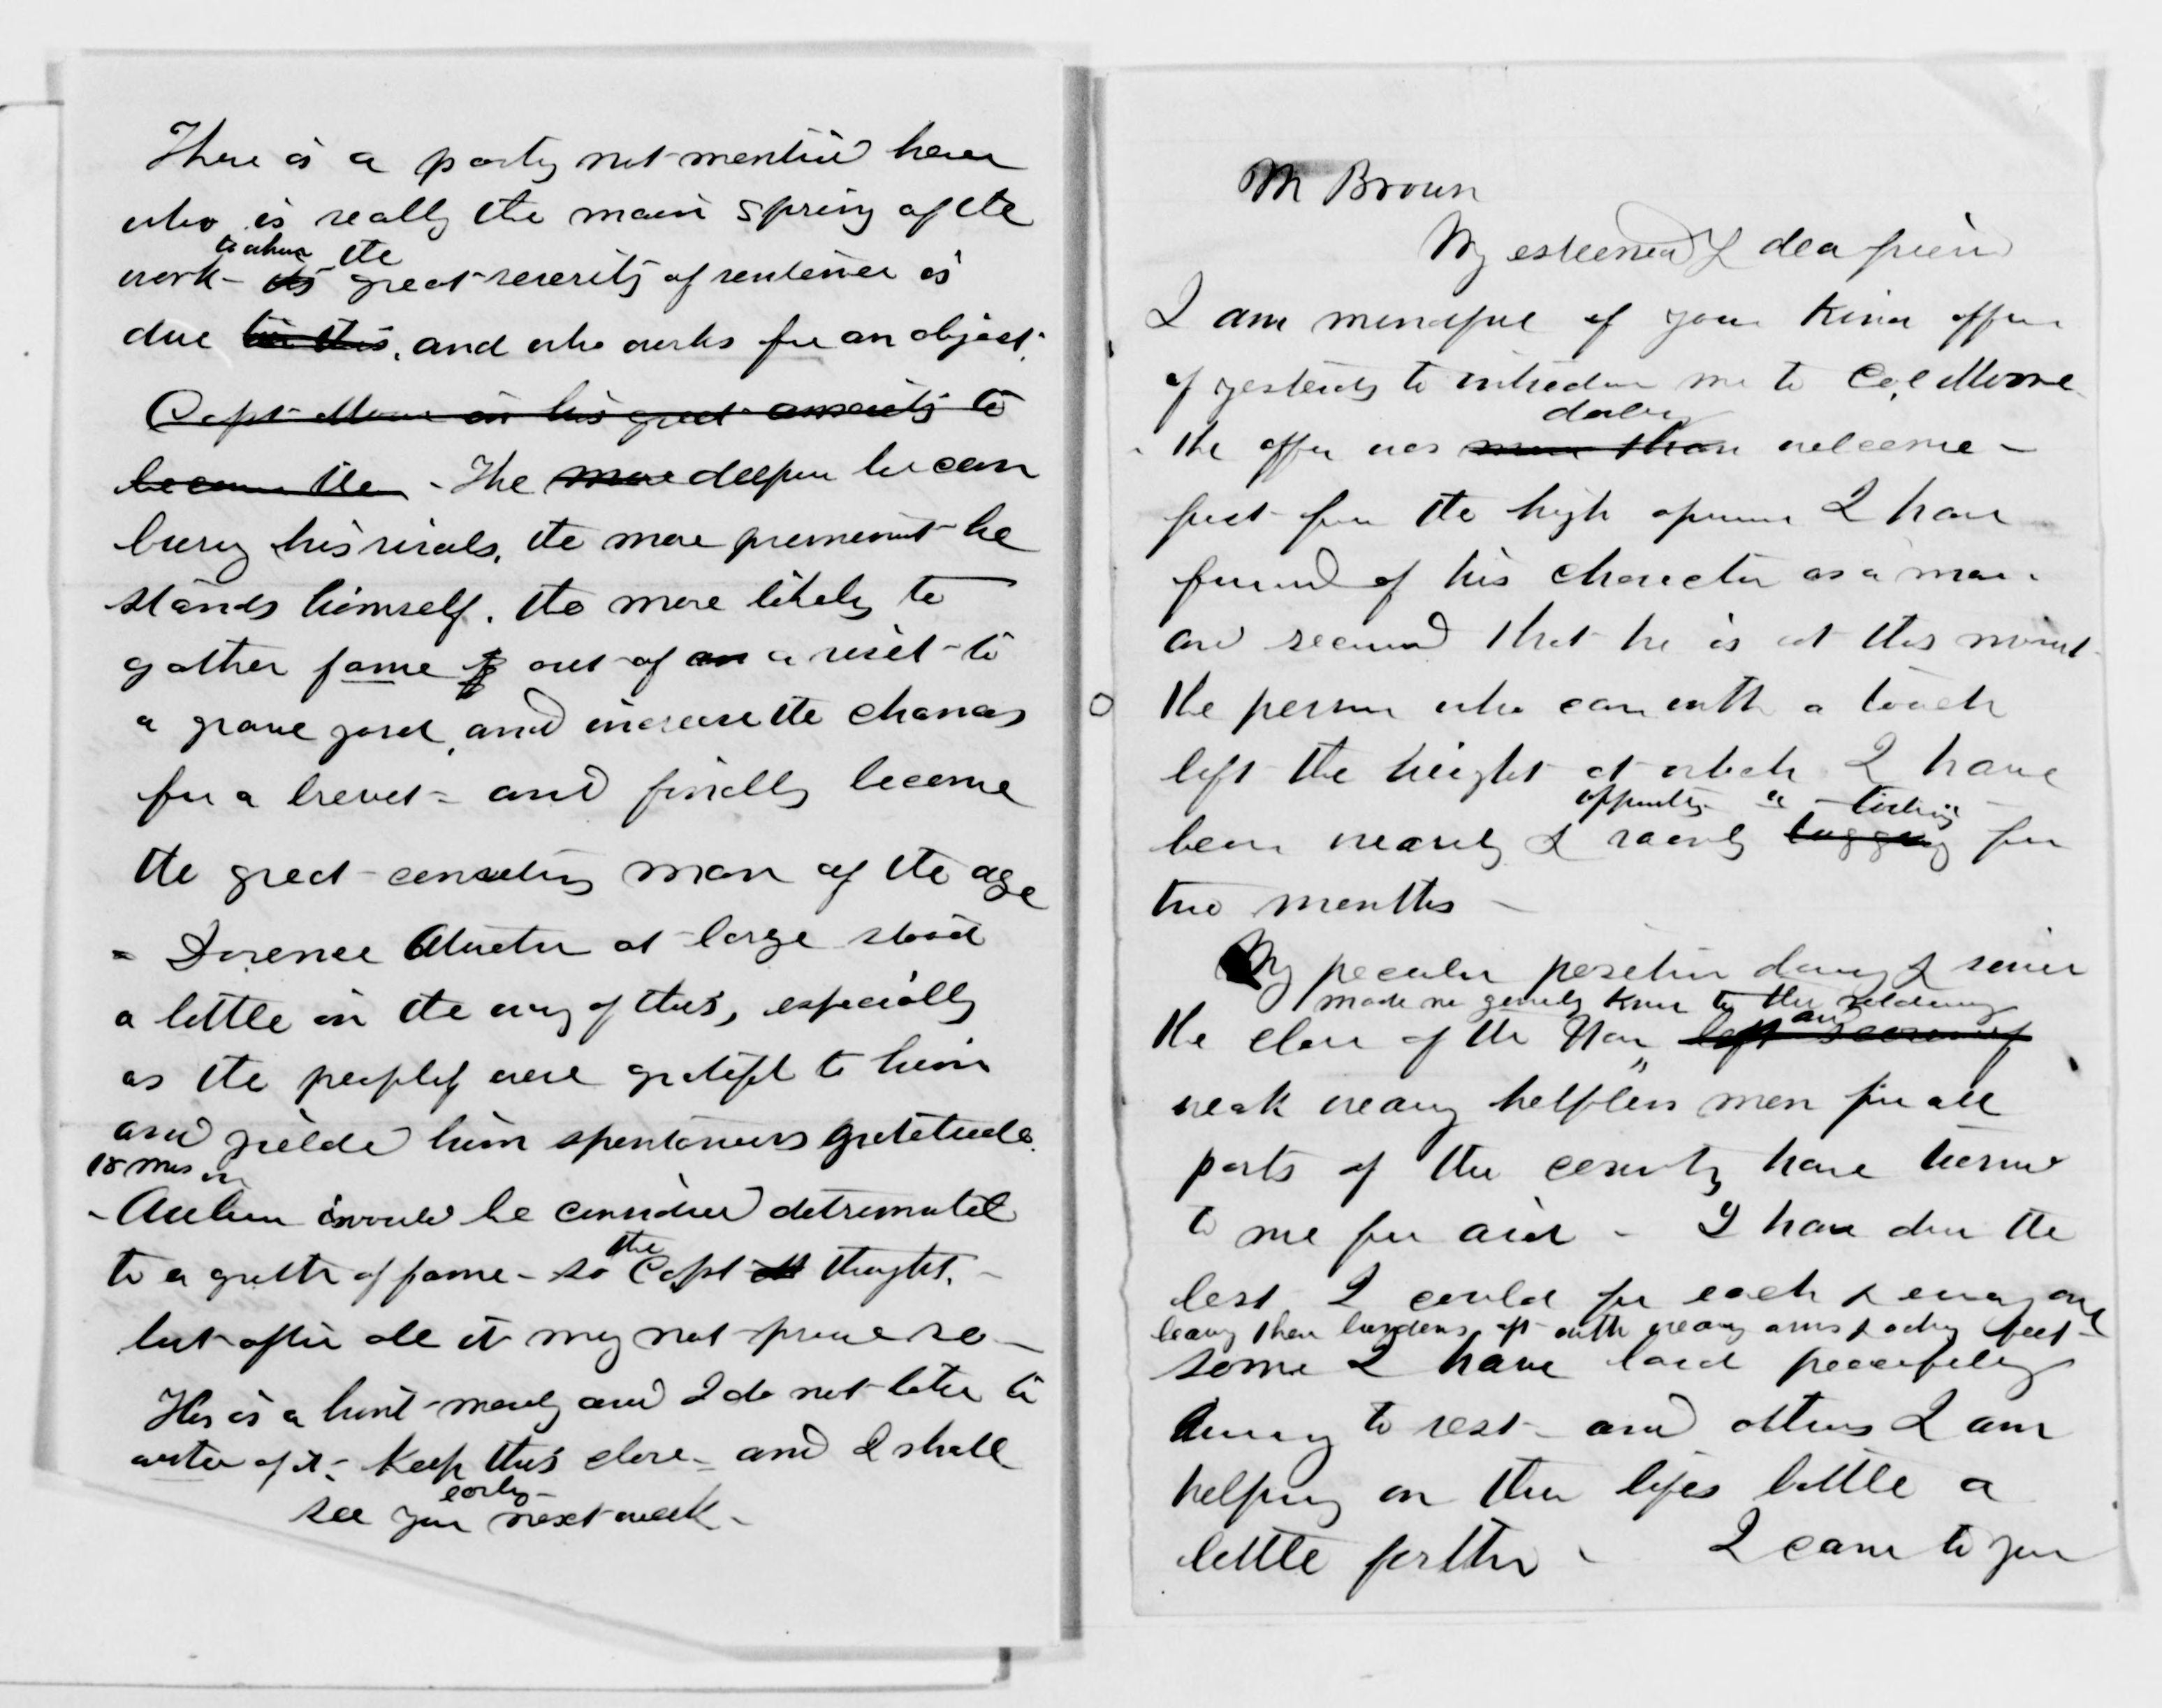 There is a party not mentioned here
who is really the main spring of the
to whom the
work - its great severity of sentence is
due to this, and who works for an object.
Capt Moore in his great anxiety to
become the - The more deeper he can
bury his rivals, the more prominent he
stands himself. the more likely to
gather fame out of an a visit to
a grave yard, and increase the chances
for a brevet - and finally become
the great man of the age
- Dorence Atwater at large stood
a little in the way of this, especially
as the people were grateful to him
and yielded him spontaneous gratitude.
18 mos in
- Auburn would be considered detrimental
the
to a growth of fame - so Capt M thought. -
but after all it may not prove so -
This is a hint merely and I do not like to
write of it - Keep this close - and I shall
early
see you next week -
Mr Brown
My esteemed & dear friend
I am mindful of your kind offer
of yesterday to introduce me to Col Moore
doubly
- the offer was more than welcome -
first for the high opinion I have
formed of his character as a man.
and second that he is at this moment
the person who can with a touch
lift the weight at which I have
been wearily & vainly tugging for
two months -
My peculiar position during & since
made me generally known to the soldiery
and
the close of the War left
weak weary helpless men from all
parts of the country have turned
to me for aid - I have done the
best I could for each & every one
bearing their burdens oft with weary arms & aching feet -
some I have laid peacefully
away to rest - and others I am
helping on their lifes battle a
little farther - I came to you